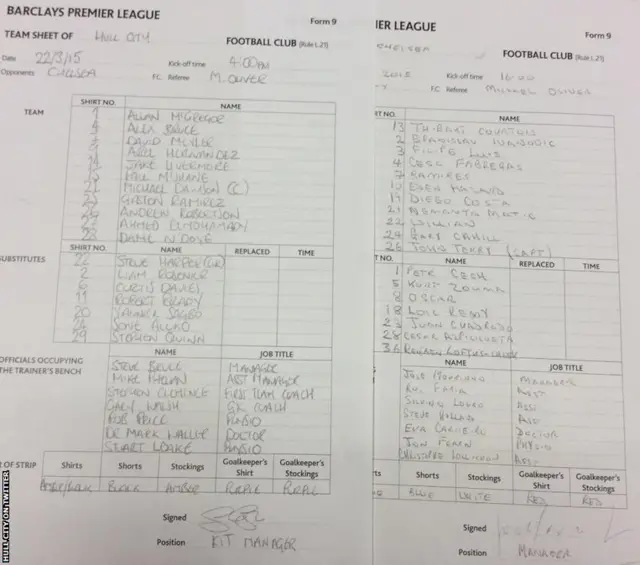 BARCLAYS PREMIER LEAGUE
Form 9
TEAM SHEET OF HULL CITY FOOTBALL CLUB (Rule L.21)
Date 22/3/15 Kick-off time 4:00PM
Opponents CHELSEA FC Referee M. OLIVER
TEAM
SHIRT NO. NAME
1 ALLAN McGREGOR
4 ALEX BRUCE
DAVID MEYLER
ABEL HERNANDEZ
JAKE LIVERMORE
PAUL McSHANE
21 MICHAEL DAWSON (C)
GASTON RAMIREZ
ANDREW ROBERTSON
27 AHMED ELMOHAMADY
28 DAME N'DOYE
SHIRT NO. NAME REPLACED TIME
SUBSTITUTES
22 STEVE HARPER (GK)
2 LIAM ROSENIOR
6 CURTIS DAVIES
11 ROBERT BRADY
20 YANNICK SAGBO
24 SONE ALUKO
29 STEPHEN QUINN
OFFICIALS OCCUPYING THE TRAINER'S BENCH
NAME JOB TITLE
STEVE BRUCE MANAGER
MIKE PHELAN ASST MANAGER
STEPHEN CLEMENCE FIRST TEAM COACH
GARY WALSH GK COACH
ROB PRICE PHYSIO
DR MARK WALLER DOCTOR
STUART LEAKE PHYSIO
OF STRIP Shirts Shorts Stockings Goalkeeper's Shirt Goalkeeper's Stockings
AMBER/BLACK BLACK AMBER PURPLE PURPLE
Signed
Position KIT MANAGER
HULL CITY ON TWITTER
IER LEAGUE
Form 9
CHELSEA FOOTBALL CLUB (Rule L.21)
2015 Kick-off time 16:00
FC Referee MICHAEL OLIVER
RT NO. NAME
13 THIBAUT COURTOIS
2 BRANISLAV IVANOVIC
3 FILIPE LUIS
4 CESC FABREGAS
7 RAMIRES
10 EDEN HAZARD
19 DIEGO COSTA
21 NEMANJA MATIC
22 WILLIAN
24 GARY CAHILL
26 JOHN TERRY (CAPT)
T NO. NAME REPLACED TIME
1 PETR CECH
5 KURT ZOUMA
8 OSCAR
18 LOIC REMY
23 JUAN CUADRADO
28 CESAR AZPILICUETA
36 RUBEN LOFTUS-CHEEK
NAME JOB TITLE
JOSE MOURINHO MANAGER
RUI FARIA ASST
SILVINO LOURO ASST
STEVE HOLLAND ASST
EVA CARNEIRO DOCTOR
JON FEARN PHYSIO
CHRISTOPHE LOLLICHON ASST
rts Shorts Stockings Goalkeeper's Shirt Goalkeeper's Stockings
BLUE WHITE RED RED
Signed
Position MANAGER